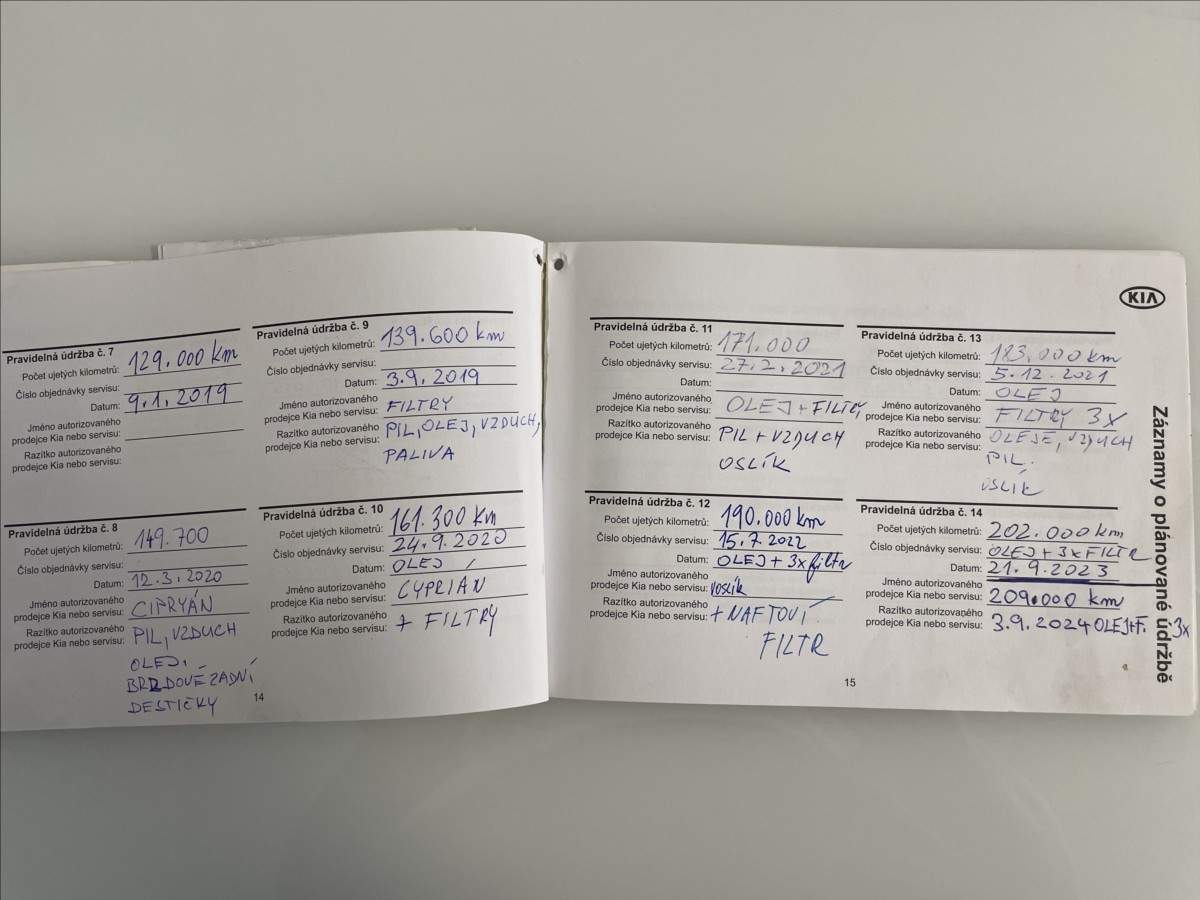 Pravidelná údržba č. 7
Počet ujetých kilometrů: 129.000 km
Číslo objednávky servisu:
Datum: 9.1.2019
Jméno autorizovaného
prodejce Kia nebo servisu:
Razítko autorizovaného
prodejce Kia nebo servisu:
Pravidelná údržba č. 8
Počet ujetých kilometrů: 149.700
Číslo objednávky servisu:
Datum: 12.3.2020
Jméno autorizovaného
prodejce Kia nebo servisu: CIPRYÁN
Razítko autorizovaného
prodejce Kia nebo servisu: PIL, VZDUCH
OLEJ,
BRZDOVÉ ZADNÍ
DESTIČKY
Pravidelná údržba č. 9
Počet ujetých kilometrů: 139.600 km
Číslo objednávky servisu:
Datum: 3.9.2019
Jméno autorizovaného
prodejce Kia nebo servisu: FILTRY
Razítko autorizovaného
prodejce Kia nebo servisu: PIL, OLEJ, VZDUCH,
PALIVA
Pravidelná údržba č. 10
Počet ujetých kilometrů: 161.300 km
Číslo objednávky servisu: 24.9.2020
Datum: OLEJ
Jméno autorizovaného
prodejce Kia nebo servisu: CYPRIAN
Razítko autorizovaného
prodejce Kia nebo servisu: + FILTRY
14
KIA
Pravidelná údržba č. 11
Počet ujetých kilometrů: 171.000
Číslo objednávky servisu: 27.2.2021
Datum:
Jméno autorizovaného
prodejce Kia nebo servisu: OLEJ + FILTRY
Razítko autorizovaného
prodejce Kia nebo servisu: PIL + VZDUCH
OSLÍK
Pravidelná údržba č. 12
Počet ujetých kilometrů: 190.000 km
Číslo objednávky servisu: 15.7.2022
Datum: OLEJ + 3x filtr
Jméno autorizovaného
prodejce Kia nebo servisu: voslík
Razítko autorizovaného
prodejce Kia nebo servisu: + NAFTOVÍ
FILTR
Pravidelná údržba č. 13
Počet ujetých kilometrů: 183.000 km
Číslo objednávky servisu: 5.12.2021
Datum: OLEJ
Jméno autorizovaného
prodejce Kia nebo servisu: FILTRY 3X
Razítko autorizovaného
prodejce Kia nebo servisu: OLEJE, VZDUCH
PIL.
OSLÍK
Pravidelná údržba č. 14
Počet ujetých kilometrů: 202.000 km
Číslo objednávky servisu: OLEJ + 3x FILTR
Datum: 21.9.2023
Jméno autorizovaného
prodejce Kia nebo servisu: 209.000 km
Razítko autorizovaného
prodejce Kia nebo servisu: 3.9.2024 OLEJ+F. 3x
15
Záznamy o plánované údržbě